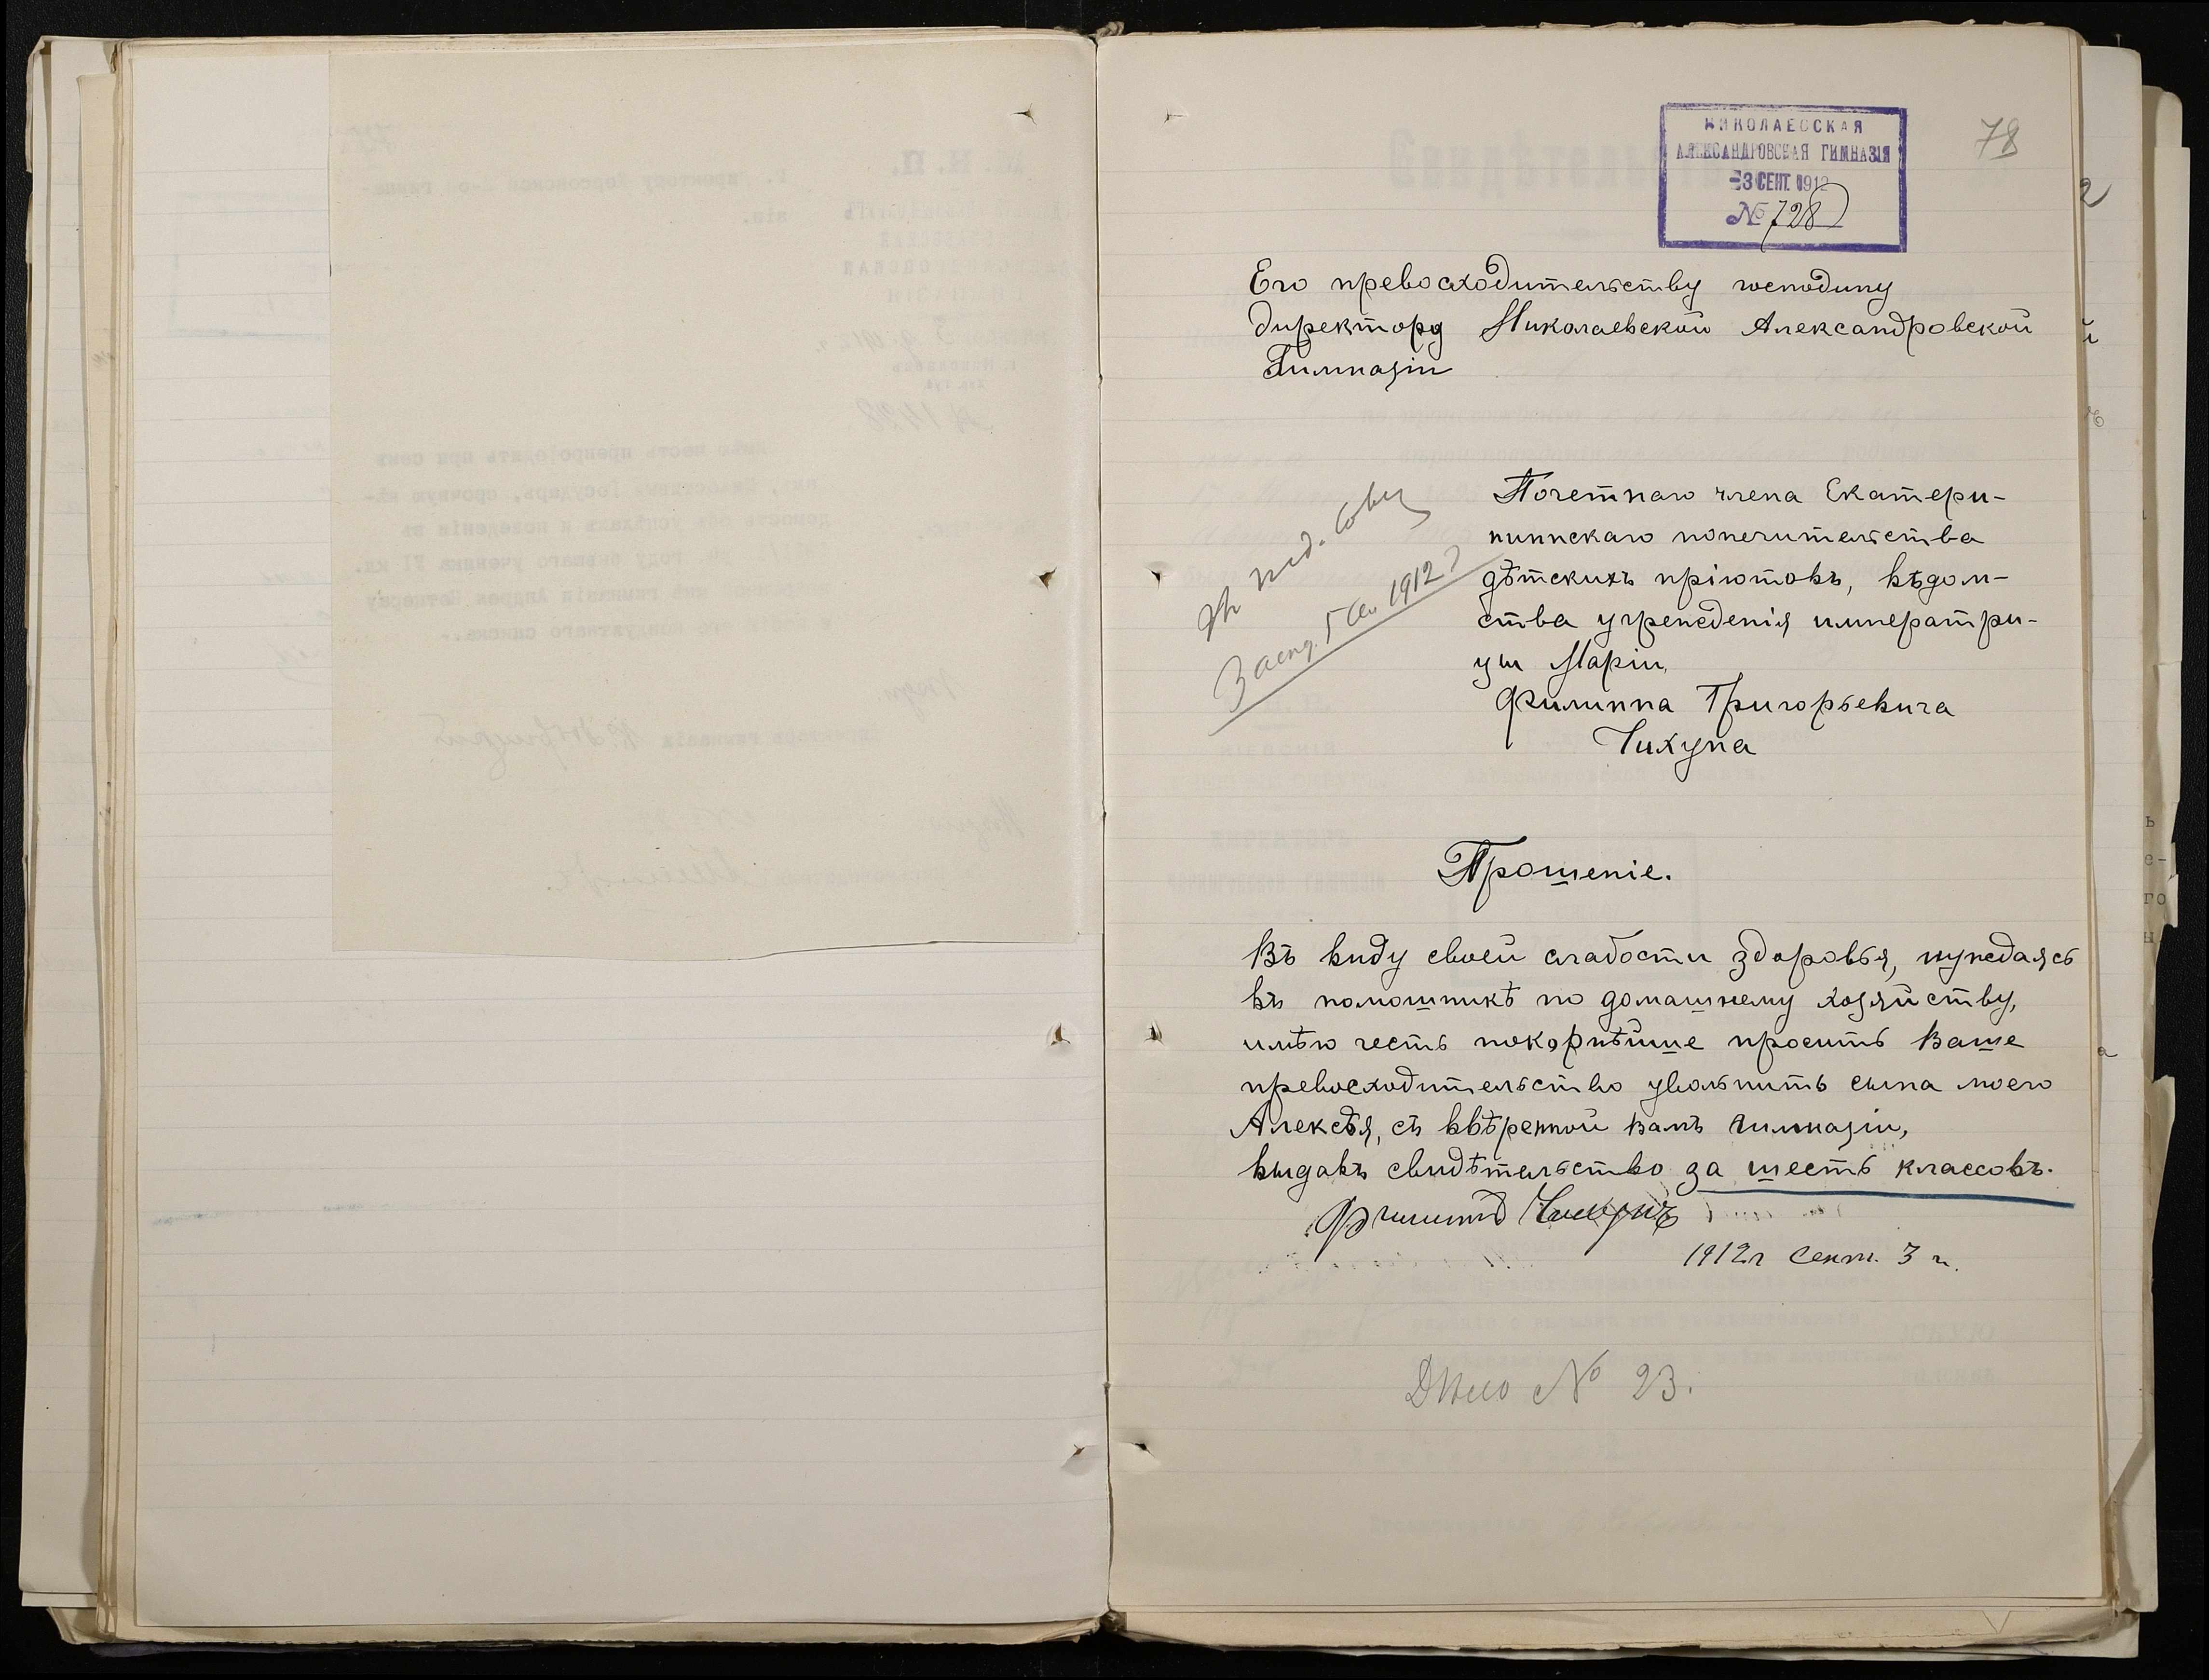 НИКОЛАЕВСКАЯ
АЛЕКСАНДРОВСКАЯ ГИМНАЗІЯ
-3 СЕНТ. 1912
№ 728
78
Его превосходительству господину
директору Николаевской Александровской
Гимназіи
Почетнаго члена Екатери-
нинскаго попечительства
дѣтскихъ пріютовъ, вѣдом-
ства учрежденія императри-
цы Маріи,
Филиппа Григорьевича
Чихуна
Въ пед. совѣ
Засѣд. 5 Се. 1912 г
Прошеніе.
Въ виду своей слабости здоровья, нуждаясь
въ помошникѣ по домашнему хозяйству,
имѣю честь покорнѣйше просить Ваше
превосходительство увольнить сына моего
Алексѣя, съ ввѣренной вамъ гимназіи,
выдавъ свидѣтельство за шесть классовъ.
Филиппъ Чихунъ
1912 г Сент. 3 ч.
Дѣло № 23.